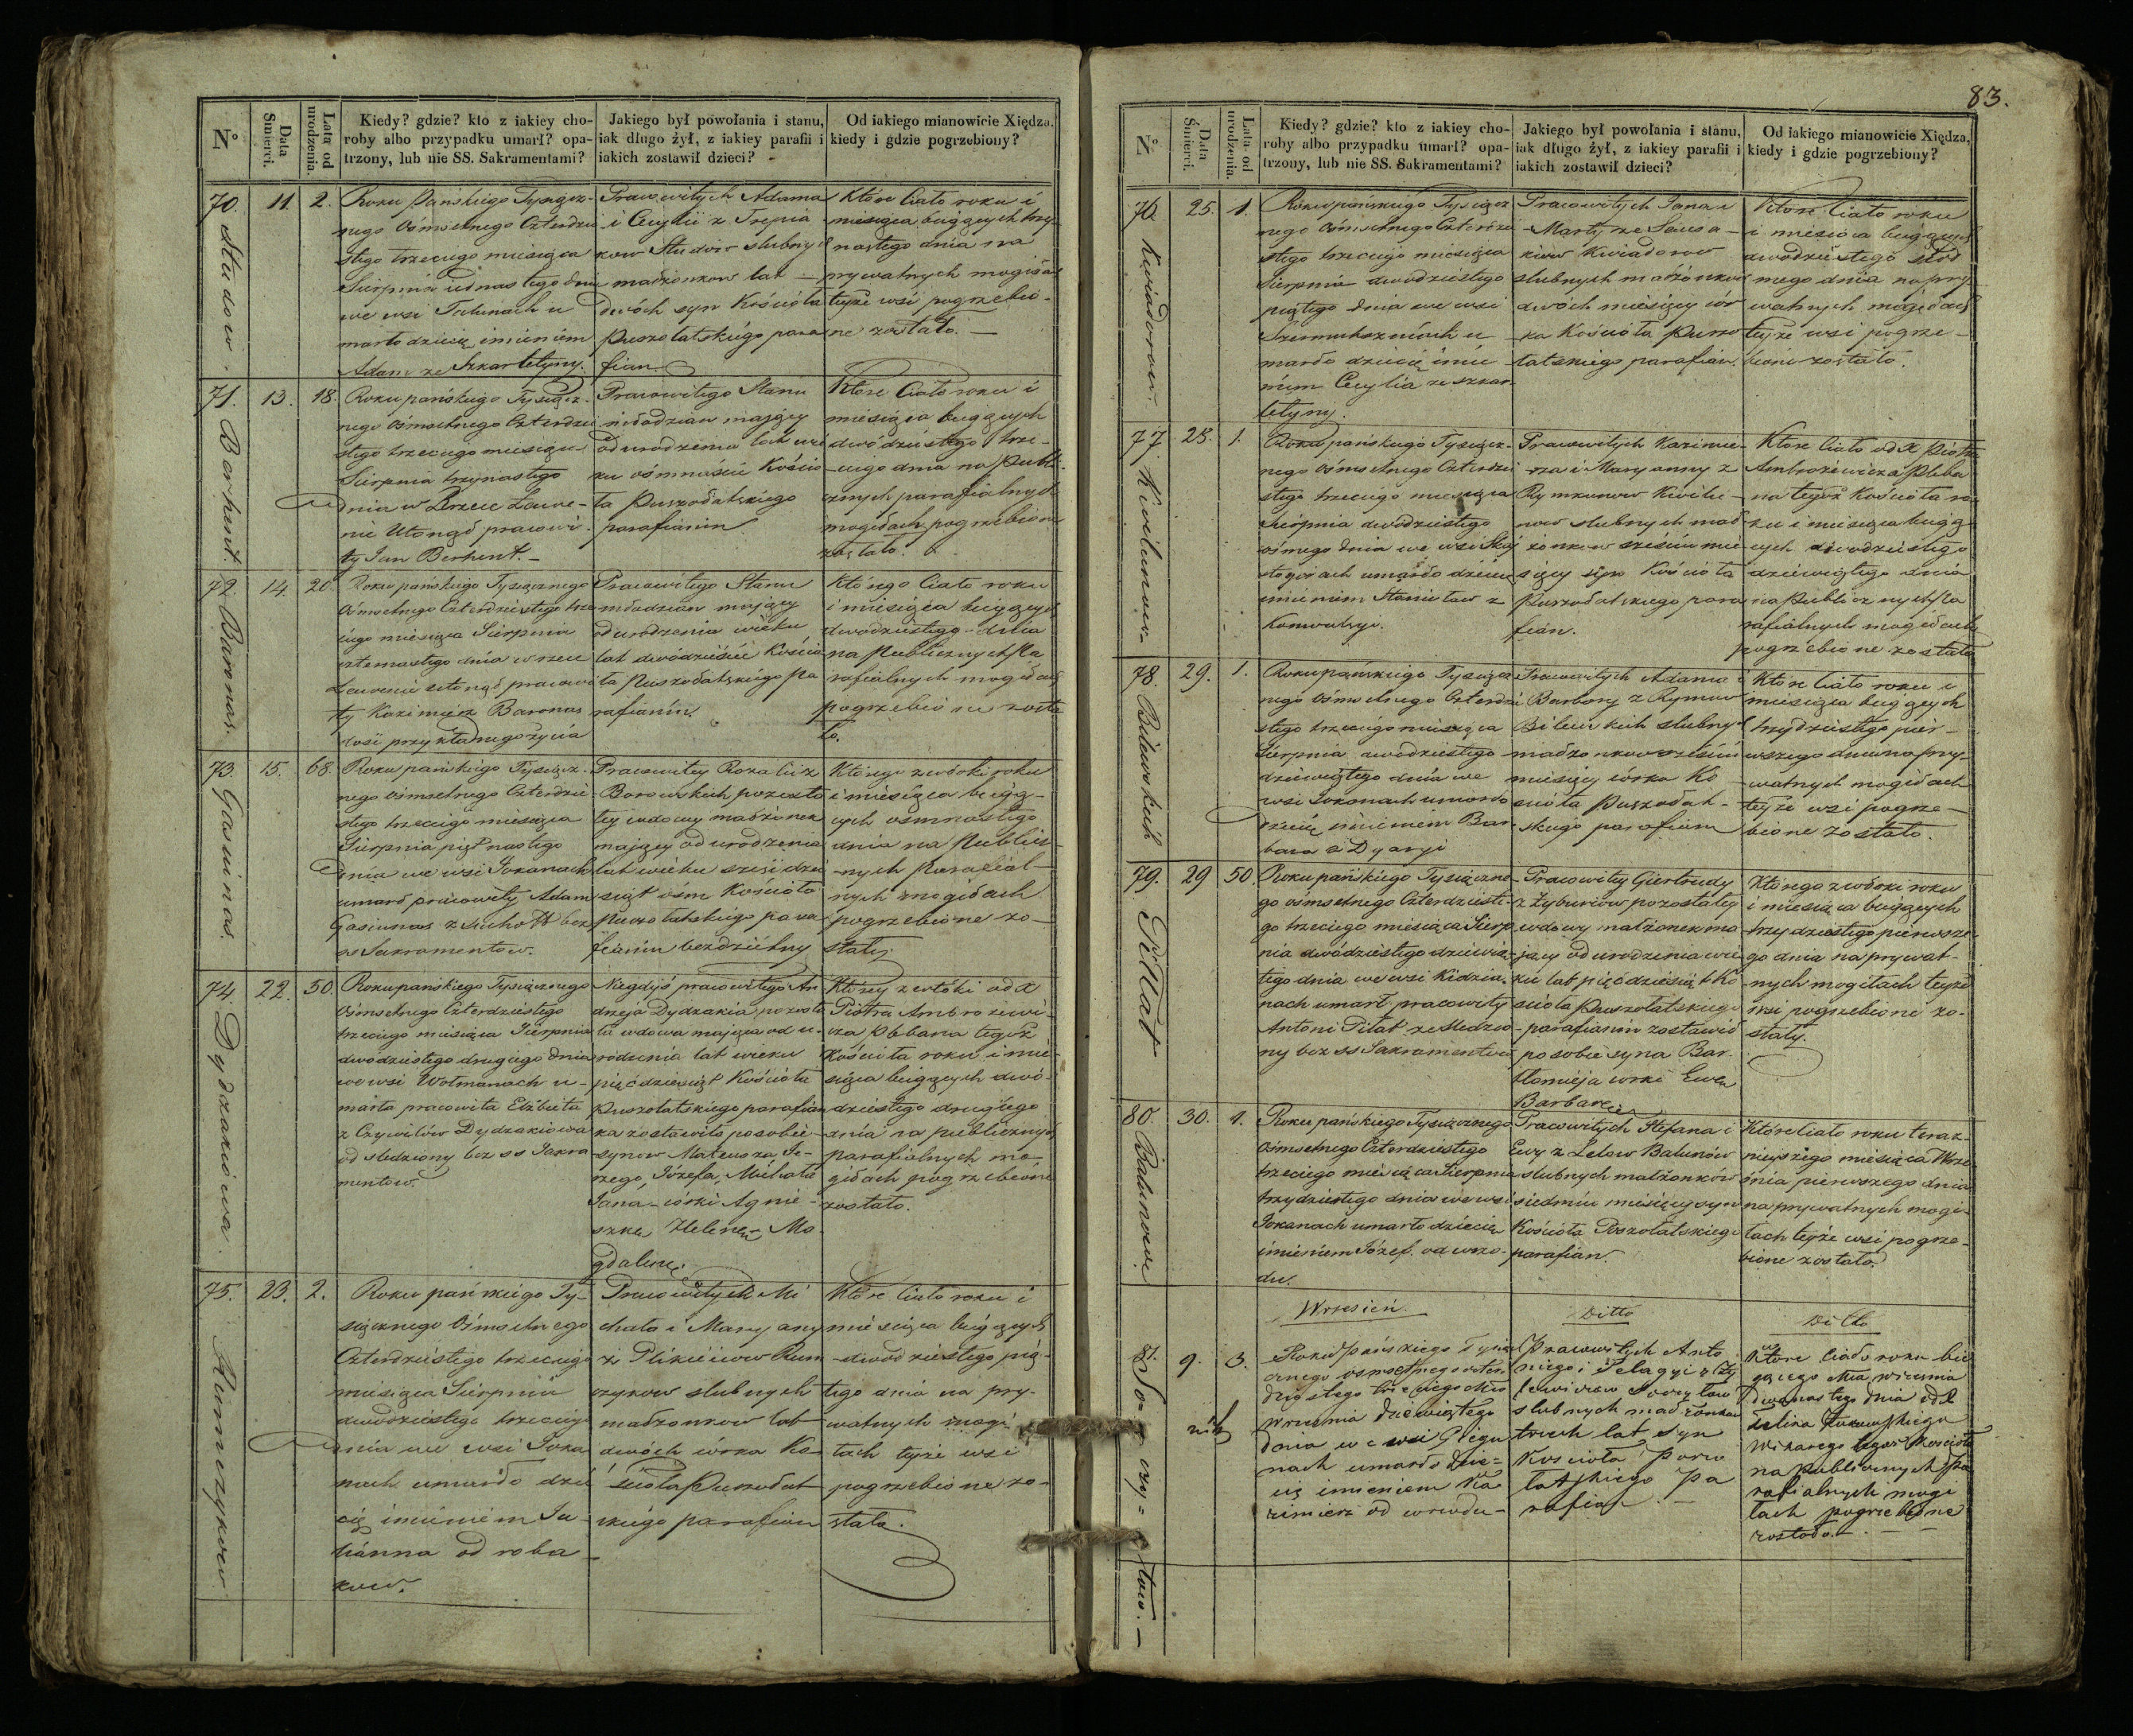 No
Data Śmierci.
Lata od urodzenia.
Kiedy? gdzie? kto z iakiey cho-
roby albo przypadku umarł? opa-
trzony, lub nie SS. Sakramentami?
Jakiego był powołania i stanu,
iak długo żył, z iakiey parafii i
iakich zostawił dzieci?
Od iakiego mianowicie Xiędza,
kiedy i gdzie pogrzebiony?
70. 11. 2.
Studow.
Roku Pańskiego Tysiącz-
nego Ośmsetnego Czterdzie
stego trzeciego miesiąca
Sierpnia jednastego dnia
we wsi u
marło dziecię imieniem
Adam ze Szkarletyny.
Pracowitych Adama
i Cecylii z
kow Studow slubnych
małżonkow lat
dwóch syn Kościoła
Puszołatskiego para
fian
Które Ciało roku i
miesiąca bieżących trzy
nastego dnia na
prywatnych mogiłach
teyże wsi pogrzebio-
ne zostało. —
71. 13. 18.
Barhent
Roku pańskiego Tysiącz-
nego Ośmsetnego Czterdzie
stego trzeciego miesiąca
Sierpnia trzynastego
dnia w Rzece Ławe-
nie Utonął pracowi-
ty Jan Berhent. —
Pracowitego Stanu
młodzian maiący
od urodzenia lat wie
ku ośmnaście Kościo
ła Puszołatskiego
parafianin
Które Ciało roku i
miesiąca bieżących
dwódziestego trze-
ciego dnia na Publi-
cznych parafialnych
mogiłach pogrzebione
zostało.
72. 14. 20.
Baronas.
Roku pańskiego Tysiącznego
Ośmsetnego Czterdziestego trze
ciego miesiąca Sierpnia
czternastego dnia w rzece
Ławenie utonął pracowi
ty Kazimierz Baronas
dość przykładnego życia
Pracowitego Stanu
młodzian maiący
od urodzenia wieku
lat dwódzieście Kościo
ła Puszołatskiego pa
rafianin.
Którego Ciało roku
i miesiąca bieżących
dwodziestego dnia
na Publicznych Pa
rafialnych mogiłach
pogrzebione zosta
ło.
73. 15. 68.
Gasiunas.
Roku pańskiego Tysiącz-
nego Ośmsetnego Czterdzie
stego trzeciego miesiąca
Sierpnia piętnastego
dnia we wsi Jokanach
umarł pracowity Adam
Gasiunas z suchot bez
ss Sakramentow.
Pracowitey Rozalii z
Borowskich pozosta
łey wdowy małżonek
maiący od urodzenia
lat wieku sześćdzie
siąt ośm Kościoła
Puszołatskiego para
fianin bezdzietny
Którego zwłoki roku
i miesiąca bieżą-
cych ośmnastego
dnia na Publicz-
nych Parafial-
nych mogiłach
pogrzebione zo-
stały.
74. 22. 50.
Dydzakiowa.
Roku pańskiego Tysiącznego
Ośmsetnego Czterdziestego
trzeciego miesiąca Sierpnia
dwódziestego drugiego dnia
we wsi Wolmanach u-
marła pracowita Elżbieta
z Czywilów Dydzakiowa
od sledziony bez ss Sakra
mentow.
Niegdyś pracowitego An
drzeja Dydzakia pozosta
ła wdowa mająca od u-
rodzenia lat wieku
pięćdziesiąt Kościoła
Puszołatskiego parafian
ka zostawiła po sobie
synow Mateusza, Je-
rzego, Józefa, Michała
Jana — córki Agnie-
szkę Helenę, Ma
gdalenę.
Którey zwłoki od X
Piotra Ambrożewi-
cza Plebana tegoż
Kościoła roku i mie-
siąca bieżących dwó-
dziestego drugiego
dnia na publicznych
parafialnych mo-
giłach pogrzebione
zostało.
75. 23. 2.
Rumczykow
Roku pańskiego Ty-
siącznego Ośmsetnego
Czterdziestego trzeciego
miesiąca Sierpnia
dwódziestego trzeciego
dnia we wsi Joka
nach umarło dzie
cię imieniem Ju-
lianna od roba-
kow.
Pracowitych Mi
chała i Maryanny
z Rum
czykow slubnych
małżonkow lat
dwóch córka Ko
ścioła Puszołat
skiego parafian
Które Ciało roku i
miesiąca bieżących
dwodziestego pią-
tego dnia na pry-
watnych mogi-
łach teyże wsi
pogrzebione zo-
stało.
83.
No
Data Śmierci.
Lata od urodzenia.
Kiedy? gdzie? kto z iakiey cho-
roby albo przypadku umarł? opa-
trzony, lub nie SS. Sakramentami?
Jakiego był powołania i stanu,
iak długo żył, z iakiey parafii i
iakich zostawił dzieci?
Od iakiego mianowicie Xiędza,
kiedy i gdzie pogrzebiony?
76. 25. 1.
Kwiadorow.
Roku pańskiego Tysiącz
nego Ośmsetnego Czterdzie
stego trzeciego miesiąca
Sierpnia dwodziestego
piątego dnia we wsi
u
marło dziecię imie
niem Cecylia ze szkar
letyny.
Pracowitych Jana i
Marty ze
kiow Kwiadorow
slubnych małżonkow
dwóch miesięcy cór
ka Kościoła Puszo
łatskiego parafian.
Które Ciało roku
i miesiąca bieżących
dwódziestego siód
mego dnia na pry
watnych mogiłach
teyże wsi pogrze-
bione zostało.
77. 28. 1.
Kwilunow
Roku pańskiego Tysiącz-
nego Ośmsetnego Czterdzie
stego trzeciego miesiąca
Sierpnia dwodziestego
ośmego dnia we wsi
umarło dziecię
imieniem Stanisław z
Konwulsyi.
Pracowitych Kazimie-
rza i Maryanny z
Rymkunow Kwilu-
now slubnych mał
żonkow sześciu mie
sięcy syn Kościoła
Puszołatskiego para
fian.
Które Ciało od X Piotra
Ambrożewicza Pleba
na tegoż Kościoła ro
ku i miesiąca bieżą
cych dwodziestego
dziewiątego dnia
na Publicznych Pa
rafialnych mogiłach
pogrzebione zostało
78. 29. 1.
Bilewskich
Roku pańskiego Tysiącz
nego Ośmsetnego Czterdzie
stego trzeciego miesiąca
Sierpnia dwodziestego
dziewiątego dnia we
wsi Jokanach umarło
dziecię imieniem Bar
bara z Dyaryi
Pracowitych Adama
i Barbary z Rymow
Bilewskich slubnych
małżonkow sześciu
miesięcy córka Ko
ścioła Puszołat-
skiego parafian
Które Ciało roku i
miesiąca bieżących
trzydziestego pier-
wszego dnia na pry-
watnych mogiłach
teyże wsi pogrze-
bione zostało.
79. 29 50.
Pillat
Roku pańskiego Tysiączne-
go ośmsetnego Czterdzieste-
go trzeciego miesiąca Sierp
nia dwódziestego dziewią-
tego dnia we wsi Kidzia-
nach umarł pracowity
Antoni Pilat ze sledzio-
ny bez ss Sakramentow
Pracowitey Giertrudy
z Żyburiow pozostałey
wdowy małżonek ma
jący od urodzenia wie
ku lat pięćdziesiąt Ko
ścioła Puszołatskiego
parafianin zostawił
po sobie syna Bar-
tłomieja córki Ewę
Barbarę
Którego zwłoki roku
i miesiąca bieżących
trzydziestego pierwsze-
go dnia na prywat-
nych mogiłach teyże
wsi pogrzebione zo-
stały.
80. 30. 1.
Balunow.
Roku pańskiego Tysiącznego
Ośmsetnego Czterdziestego
trzeciego miesiąca Sierpnia
trzydziestego dnia we wsi
Jokanach umarło dziecię
imieniem Józef od wrzo-
du.
Pracowitych Stefana i
Ewy z Lelow Balunów
slubnych małżonków
siedmiu miesięcy syn
Kościoła Poszołatskiego
parafian.
Które Ciało roku teraz-
nieyszego miesiąca Wrze
śnia pierwszego dnia
na prywatnych mogi-
łach teyże wsi pogrze-
bione zostało.
Wrzesień.
Ditto
Ditto
81. 9. 3.
Roku Pańskiego Tysią
cznego osmsetnego czter
dziestego trzeciego Mca
wrzesnia dziewiątego
dnia we wsi
nach umarło dzie=
cię imieniem Ka
zimierz od wrzodu —
Pracowitych Anto
niego i Pelagyi z
slubnych małżonkow
trzech lat syn
Kościoła Poszo
łatskiego Pa
rafian. —
Które Ciało roku bie
żącego Mca wrzesnia
dwunastego dnia od X
Wikarego tegoż Kościoła
na publicznych Pa
rafialnych mogi
łach pogrzebione
zostało. —